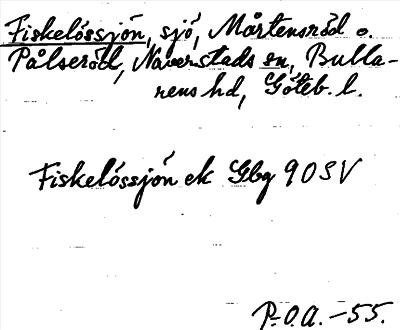 Fiskelössjön, sjö, Mårtensröd o.
Pålseröd, Naverstads sn, Bulla-
rens hd, Göteb. l.
Fiskelössjön ek Gbg 90 SV
P.O.A. -55.